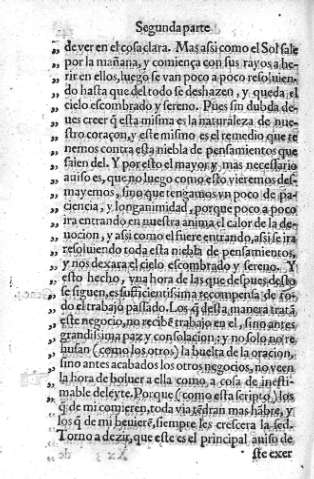 Segunda parte
„ de ver en el cosa clara. Mas assi como el Sol sale
„ por la mañana, y comiença con sus rayos a he-
„ rir en ellos, luego se van poco a poco resoluien-
„ do hasta que del todo se deshazen, y queda el
„ cielo escombrado y sereno. Pues sin dubda de-
„ ues creer q̃ esta misma es la naturaleza de nue-
„ stro coraçon, y este mismo es el remedio que te
„ nemos contra esta niebla de pensamientos que
„ salen del. Y por esto el mayor y mas necessario
„ auiso es, que no luego como esto vieremos des-
„ mayemos, sino que tengamos vn poco de pa-
„ ciencia, y longanimidad, porque poco a poco
„ ira entrando en nuestra anima el calor de la de-
„ uocion, y assi como el fuere entrando, assi se ira
„ resoluiendo toda esta niebla de pensamientos,
„ y nos dexara el cielo escombrado y sereno. Y
„ esto hecho, vna hora de las que despues desto
„ se siguen, es sufficientissima recompensa de to-
„ do el trabajo passado. Los q̃ desta manera tratã
„ este negocio, no recibẽ trabajo en el, sino antes
„ grandissima paz y consolacion: y no solo no re
„ husan (como los otros) la buelta de la oracion,
„ sino antes acabados los otros negocios, no veen
„ la hora de boluer a ella como a cosa de inesti-
„ mable deleyte. Porque (como esta scripto) los
„ q̃ de mi comieren, toda via tẽdran mas hãbre, y
„ los q̃ de mi beuierẽ, siempre les crescera la sed.
Torno a dezir, que este es el principal auiso de
ste exer